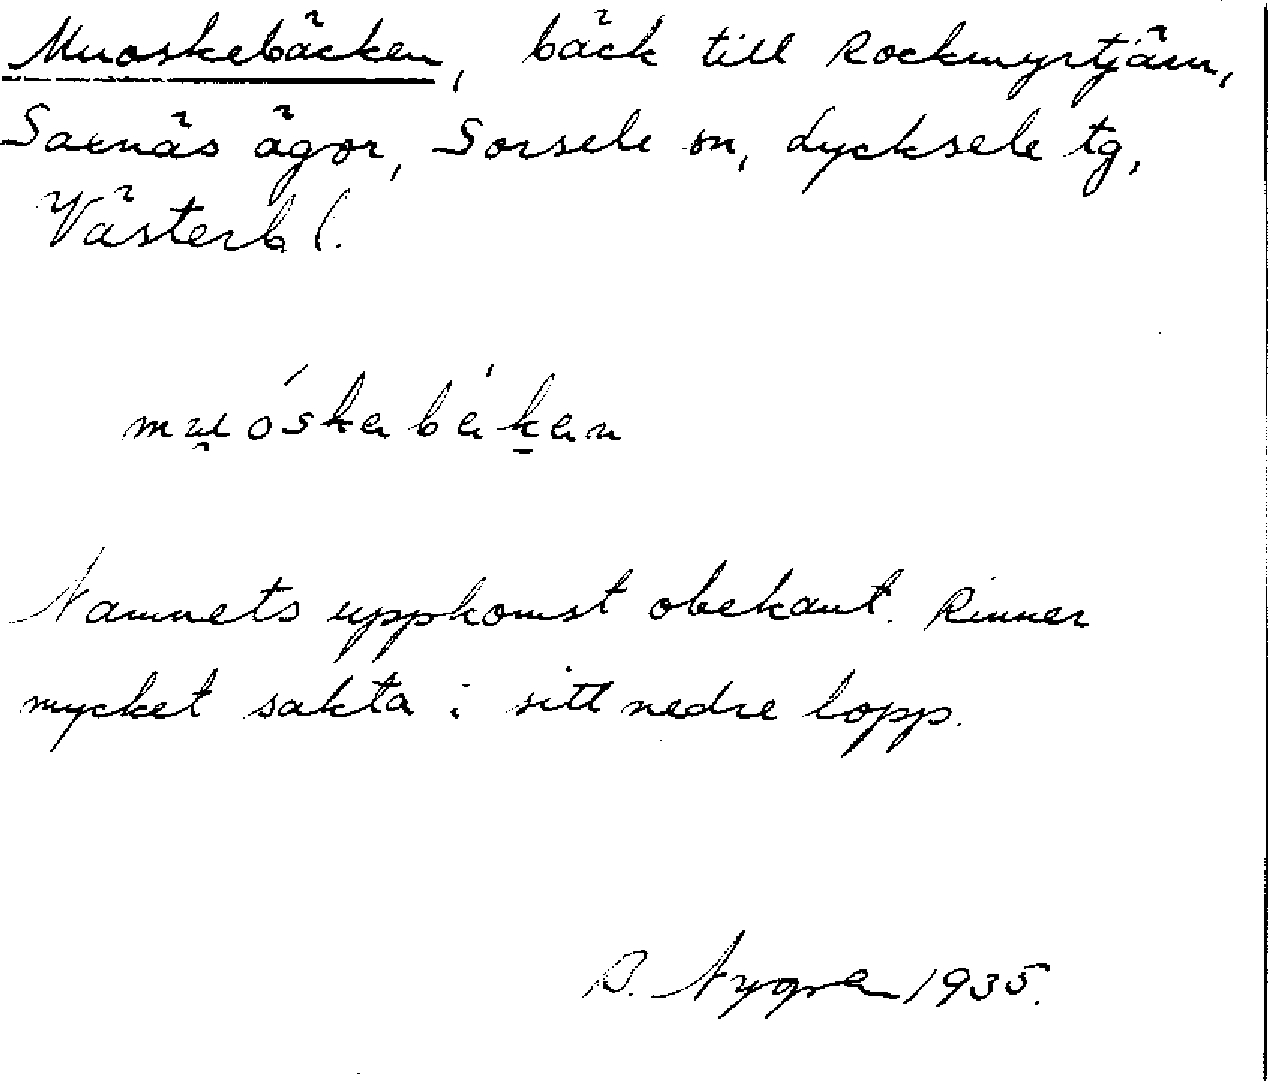 Muoskebäcken, bäck till Rockmyrtjärn,
Sarnäs ägor, Sorsele sn, Lycksele tg,
Västerb l.
mu̯óskabäḱan
Namnets uppkomst obekant. Rinner
mycket sakta i sitt nedre lopp.
B. Nygren 1935.